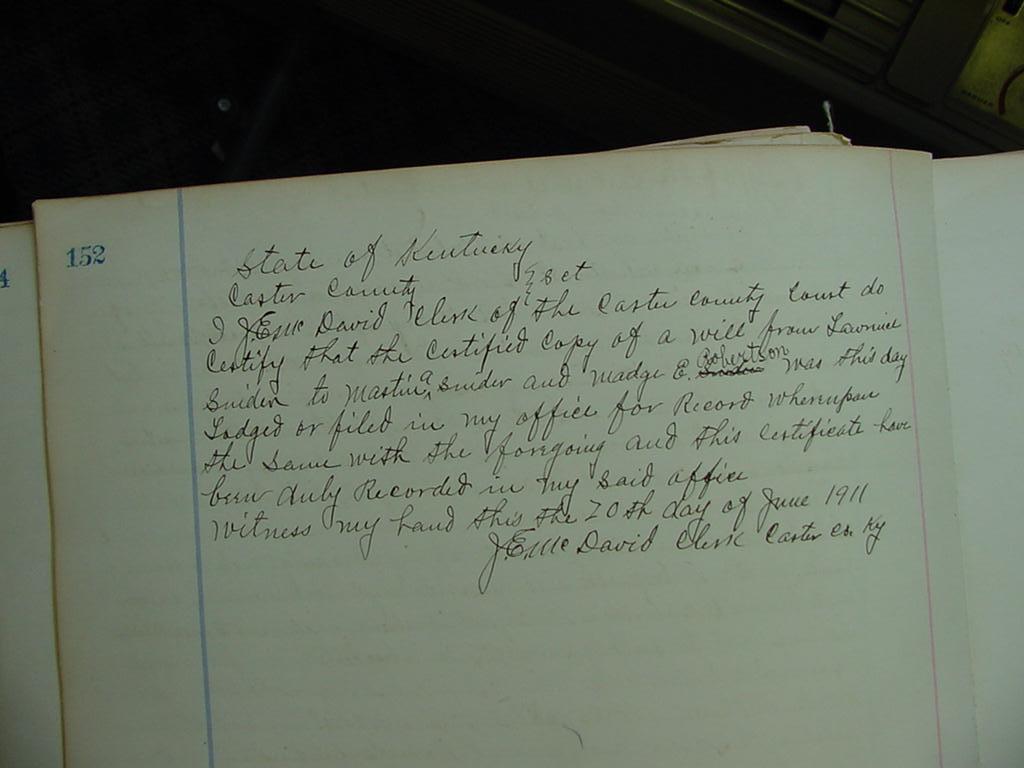 152
State of Kentucky
Carter County } Sct
I J.E. McDavid Clerk of the Carter County Court do
Certify that the Certified Copy of a will from
Snider to Martin a Snider and Madge E. Robertson was this day
Lodged or filed in my office for Record whereupon
the same with the foregoing and this certificate have
been duly Recorded in my said office
Witness my hand this the 20th day of June 1911
J.E. McDavid Clerk Carter Co. Ky
4